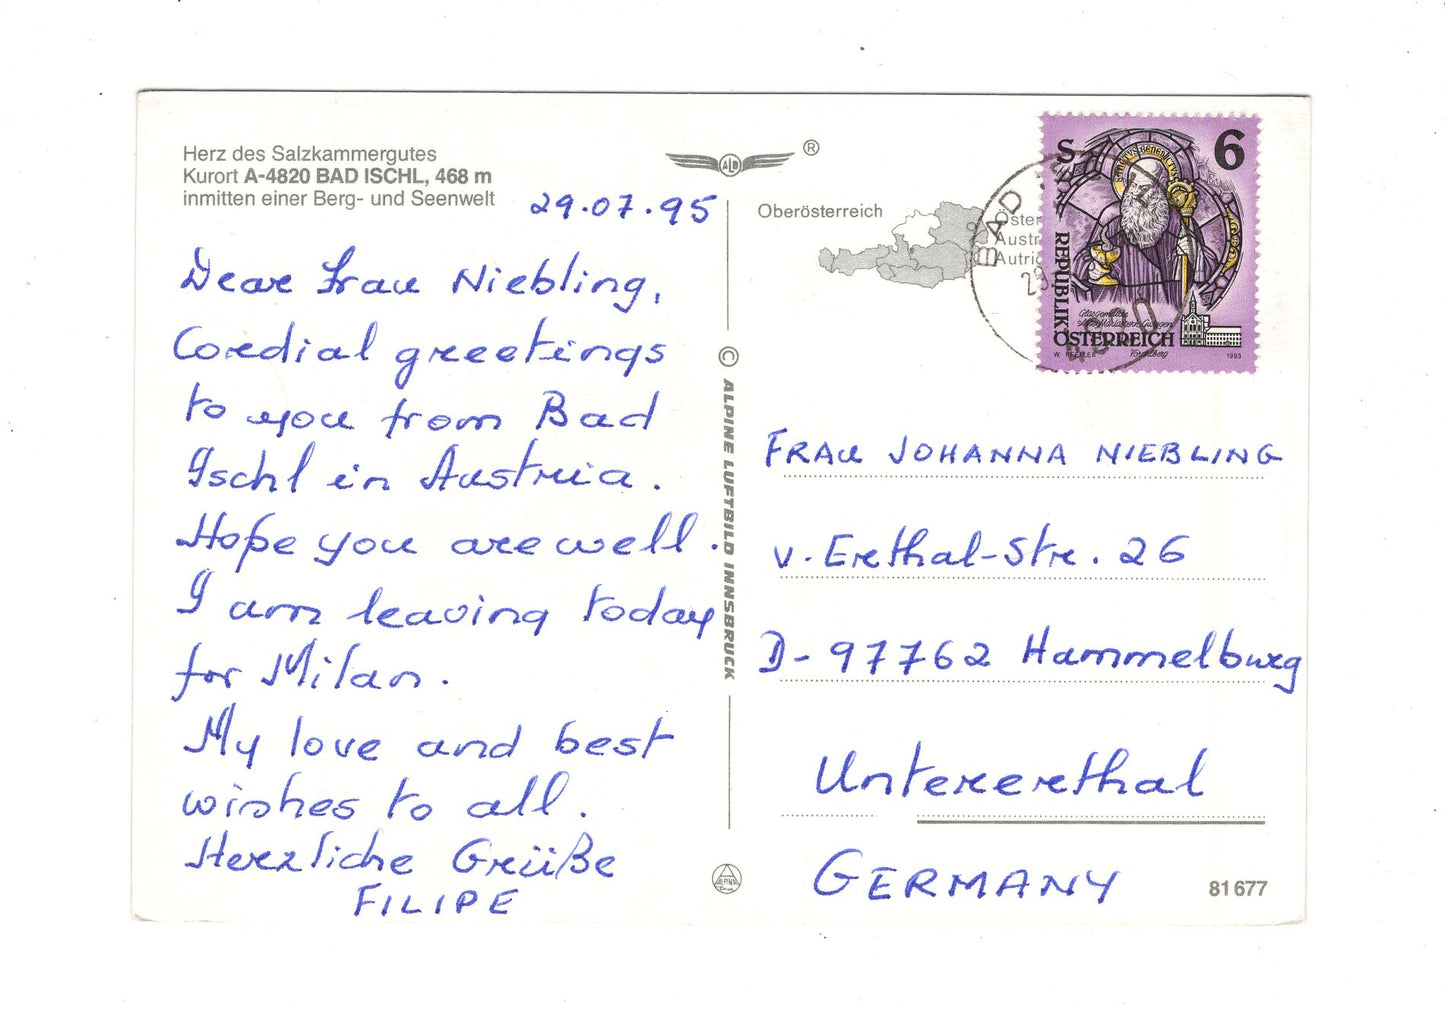 Herz des Salzkammergutes
Kurort A-4820 BAD ISCHL, 468 m
inmitten einer Berg- und Seenwelt
29.07.95
Dear Frau Niebling,
Cordial greetings
to you from Bad
Ischl in Austria.
Hope you are well.
I am leaving today
for Milan.
My love and best
wishes to all.
Herzliche Grüße
FILIPE
ALB ®
© ALPINE LUFTBILD INNSBRUCK
ALPINE
Oberösterreich
Öster
Austr
Autric
BAD
S 6
REPUBLIK
ÖSTERREICH
1993
FRAU JOHANNA NIEBLING
v. Erthal-Str. 26
D-97762 Hammelburg
Untererthal
GERMANY
81 677